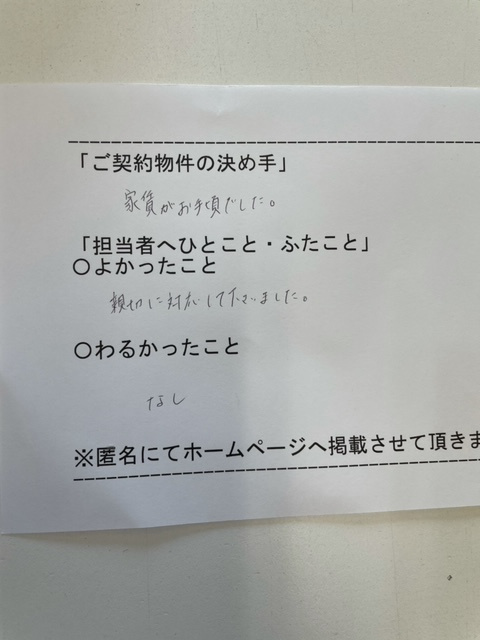 「ご契約物件の決め手」
家賃がお手頃でした。
「担当者へひとこと・ふたこと」
〇よかったこと
親切に対応して下さいました。
〇わるかったこと
なし
※匿名にてホームページへ掲載させて頂きま